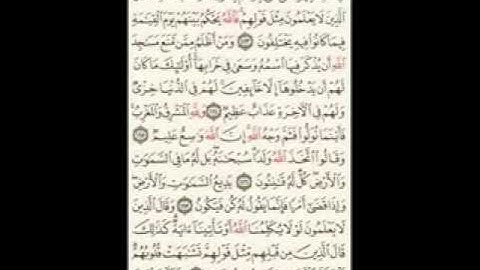 ٱلَّذِينَ لَا يَعْلَمُونَ مِثْلَ قَوْلِهِمْ ۚ فَٱللَّهُ يَحْكُمُ بَيْنَهُمْ يَوْمَ ٱلْقِيَٰمَةِ
فِيمَا كَانُوا۟ فِيهِ يَخْتَلِفُونَ ﴿١١٣﴾ وَمَنْ أَظْلَمُ مِمَّن مَّنَعَ مَسَٰجِدَ
ٱللَّهِ أَن يُذْكَرَ فِيهَا ٱسْمُهُۥ وَسَعَىٰ فِى خَرَابِهَآ ۚ أُو۟لَٰٓئِكَ مَا كَانَ
لَهُمْ أَن يَدْخُلُوهَآ إِلَّا خَآئِفِينَ ۚ لَهُمْ فِى ٱلدُّنْيَا خِزْىٌ
وَلَهُمْ فِى ٱلْـَٔاخِرَةِ عَذَابٌ عَظِيمٌ ﴿١١٤﴾ وَلِلَّهِ ٱلْمَشْرِقُ وَٱلْمَغْرِبُ ۚ
فَأَيْنَمَا تُوَلُّوا۟ فَثَمَّ وَجْهُ ٱللَّهِ ۚ إِنَّ ٱللَّهَ وَٰسِعٌ عَلِيمٌ ﴿١١٥﴾
وَقَالُوا۟ ٱتَّخَذَ ٱللَّهُ وَلَدًا ۗ سُبْحَٰنَهُۥ ۖ بَل لَّهُۥ مَا فِى ٱلسَّمَٰوَٰتِ
وَٱلْأَرْضِ ۖ كُلٌّ لَّهُۥ قَٰنِتُونَ ﴿١١٦﴾ بَدِيعُ ٱلسَّمَٰوَٰتِ وَٱلْأَرْضِ ۖ
وَإِذَا قَضَىٰٓ أَمْرًا فَإِنَّمَا يَقُولُ لَهُۥ كُن فَيَكُونُ ﴿١١٧﴾ وَقَالَ ٱلَّذِينَ
لَا يَعْلَمُونَ لَوْلَا يُكَلِّمُنَا ٱللَّهُ أَوْ تَأْتِينَآ ءَايَةٌ ۗ كَذَٰلِكَ
قَالَ ٱلَّذِينَ مِن قَبْلِهِم مِّثْلَ قَوْلِهِمْ ۘ تَشَٰبَهَتْ قُلُوبُهُمْ ۗ